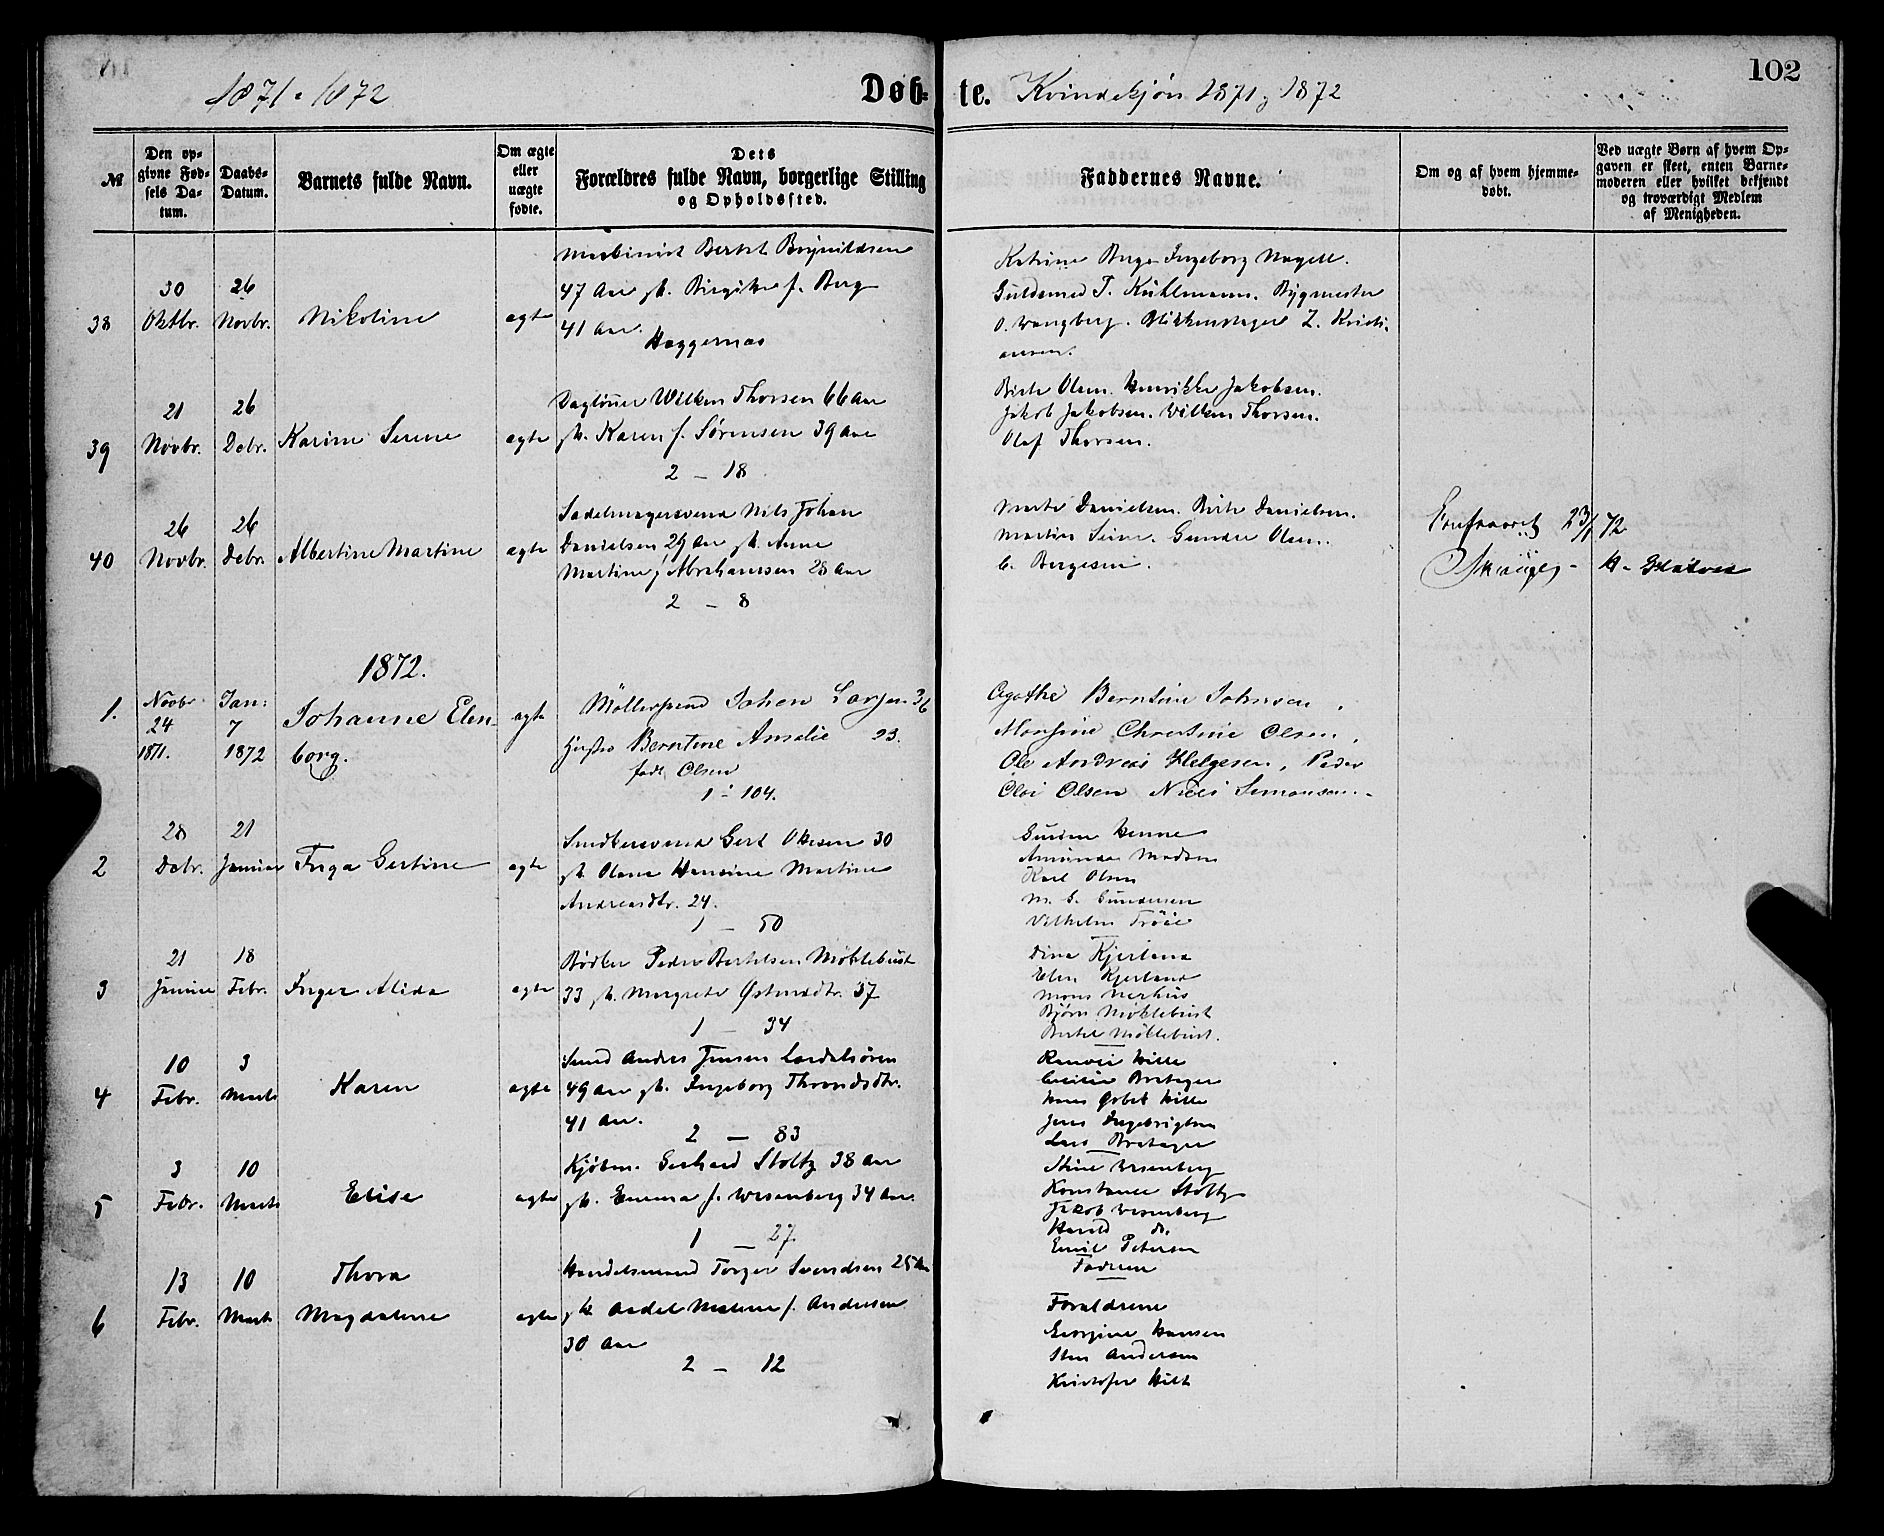 1871 & 1872
Døb-
te.
Kvindekjøn 1871 & 1872
102
№
Den op-
givne Fød-
sels Da-
tum.
Daabs-
Datum.
Barnets fulde Navn.
Om ægte
eller
uægte
fødte.
Dets
Forældres fulde Navn, borgerlige Stilling
og Opholdssted.
Faddernes Navne.
Om og af hvem hjemme-
døbt.
Ved uægte Børn af hvem Op-
gaven er skeet, enten Barne-
moderen eller hvilket bekjendt
og troværdigt Medlem
af Menigheden.
38
30
Oktbr.
26
Novbr.
Nikoline
ægte
Maskinist Bertel Brynildsen
47 Aar h. Birgitte f. Berg
41 Aar.
Heggernæs
Katrine Berge Ingeborg Nagell.
Guldsmed T. Kühlmann. Bygmester
O. Vangberg. Blikkenslager Z. Kristi-
ansen.
39
21
Novbr.
26
Debr.
Karine Serine
ægte
Dagløner Wilken Thorsen 66 Aar
h. Karen f. Sørensen 39 Aar
2 – 18
Birte Olsen. Henrikke Jakobsen.
Jakob Jakobsen. Wilken Thorsen.
Olaf Thorsen.
40
26
Novbr.
26
Debr.
Albertine Martine
ægte
Sadelmagersvend Nils Johan
Danielsen 29 Aar h. Anne
Martine f. Abrahamsen 28 Aar
2 – 8
Marte Danielsen. Birte Danielsen.
Martin Seim. Gunder Olsen.
C. Børgesen.
72
1872.
1.
Novbr
24
1871.
Jan:
7
1872
Johanne Elen-
borg.
ægte
Møllersvend Johan Larsen 36
Hustru Berntine Amalie 23.
født Olsen
1 - 104.
Agathe Berntine Johnsen,
Monsine Christine Olsen,
Ole Andreas Helgesen, Peder
Olai Olsen Niels Simonsen.
2
28
Debr.
21
Januar
Inga Gertine
ægte
Snedkersvend Gert Olsen 30
h. Olene Hansine Martine
Andreasdtr. 24.
1 – 50
Henne
Amunda Madsen
Karl Olsen
M. G. Gundersen
Vilhelm Trøie
3
21
Januar
18
Febr.
Inger Alida
ægte
Bødker Peder Bertelsen Møklebust
33 h. Margrete Østensdtr. 37
1 – 34
Dina Kjerland
Elen Kjerland
Mons Nerhus
Bjørn Møklebust
Bertel Møklebust.
4
10
Febr.
3
Marts
Karen
ægte
Smed Anders Jensen Lærdalsøren
49 Aar h. Ingeborg Throndsdtr.
41 Aar.
2 – 83
Ranvei Hille
Bretager
Hille
Jens Ingebrigtsen
Lars Bretager
5
3
Febr.
10
Marts
Elise
ægte
Kjøbm. Gerhard Stoltz 38 Aar
h. Emma f. Wesenberg 34 Aar.
1 – 27.
Stine Wesenberg
Konstance Stoltz
Jakob Wesenberg
Harald do.
Emil Petersen
Faderen
6
13
Febr.
10
Marts
Thora
Magdalene
ægte
Handelsmand Torger Svendsen 25 Aar
h. Malene f. Andersen
30 Aar
2 – 12
Forældrene
Georgine Hansen
Sten Andersen
Kristofer Hilt